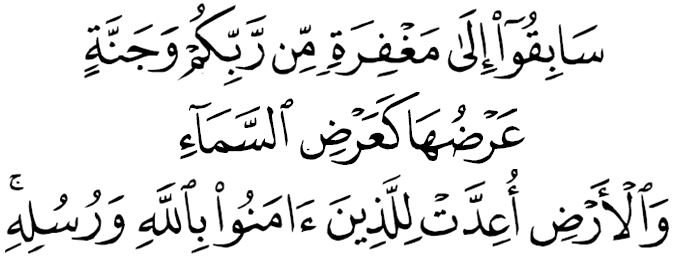 سَابِقُوٓا۟ إِلَىٰ مَغْفِرَةٍ مِّن رَّبِّكُمْ وَجَنَّةٍ
عَرْضُهَا كَعَرْضِ ٱلسَّمَآءِ
وَٱلْأَرْضِ أُعِدَّتْ لِلَّذِينَ ءَامَنُوا۟ بِٱللَّهِ وَرُسُلِهِۦۚ